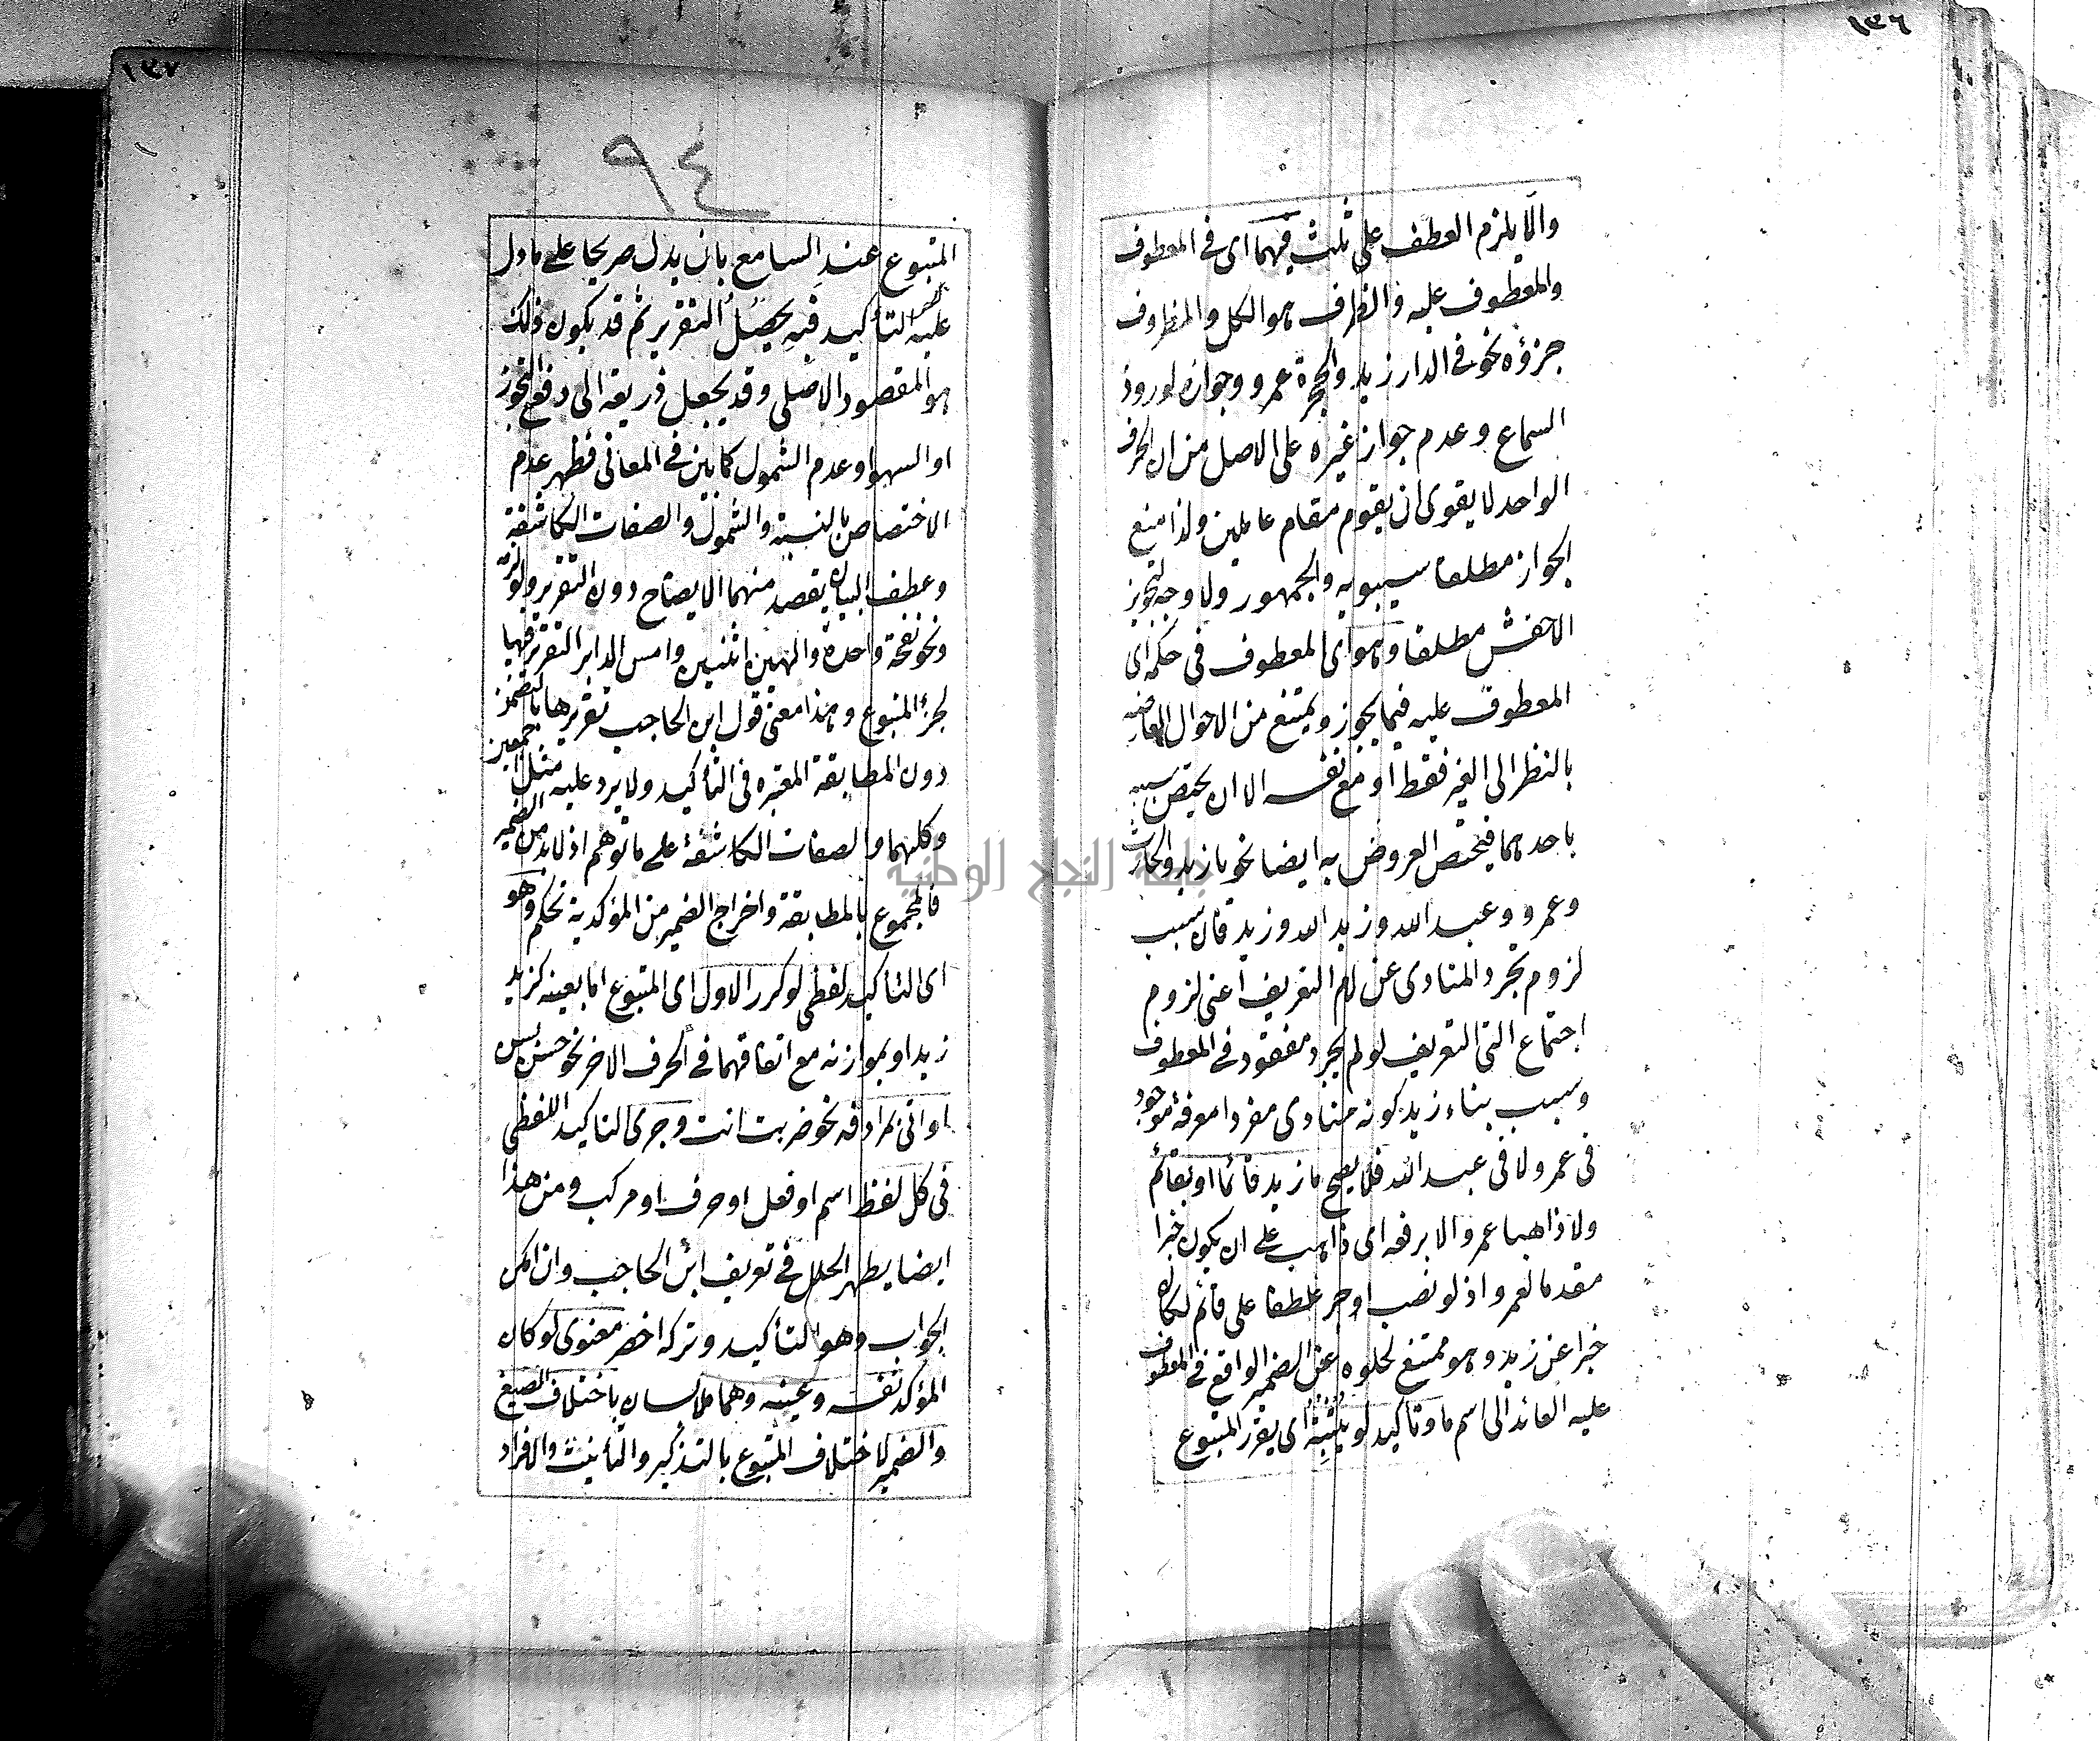 ١٣٦
والا يلزم العطف على ثلث فيهما اى فى المعطوف
والمعطوف عليه والظرف هو الكل والمظروف
جزؤه نحو فى الدار زيد والحجرة عمرو وجوازه لورود
السماع وعدم جواز غيره على الاصل من ان الحرف
الواحد لا يقوى ان يقوم مقام عاملين ولذا منع
الجواز مطلقا سيبويه والجمهور ولا وجه لتجويز
الاخفش مطلقا وهو اى المعطوف فى حكم اى
المعطوف عليه فيما يجوز ويمتنع من الاحوال العارضه
بالنظر الى الغير فقط او مع نفسه الا ان يختص سببه
باحدهما فيختص العروض به ايضا نحو يا زيد والحارث
وعمرو وعبد الله وزيد الله وزيد فان سبب
لزوم تجرد المنادى عن لام التعريف اعنى لزوم
اجتماع التى التعريف لو لم يجرد مفقود فى المعطوف
وسبب بناء زيد كونه منادى مفردا معرفة موجود
فى عمرو لا فى عبد الله فلا يصح ما زيد قائما او بقائم
ولا ذاهبا عمرو الا برفعه اى ذاهب على ان يكون خبرا
مقدما لعمرو اذ لو نصب او جر عطفا على قائم لكان
خبرا عن زيد وهو ممتنع لخلوه عن الضمير الواقع فى المعطوف
عليه العائد الى اسم ما وتاكيد لو يثبته اى يقرر المتبوع
١٣٧
٩٤
المتبوع عند السامع بان يدل صريحا على ما دل
عليه التأكيد فبه يحصل التقرير ثم قد يكون ذلك
هو المقصود الاصلى وقد يجعل ذريعة الى دفع التجوز
او السهو او عدم الشمول كما بين فى المعانى فظهر عدم
الاختصاص بالنسبة والشمول والصفات الكاشفة
وعطف البيان يقصد منهما الايضاح دون التقرير
ونحو نفخة واحدة والهين اثنين وامس الدابر التقرير فيها
لجزء المتبوع وهذا معنى قول ابن الحاجب تقريرها بالتضمن
دون المطابقة المعتبره فى التأكيد ولا يرد عليه مثل اجمعين
وكلهما والصفات الكاشفة على ما توهم اذ لا بد من الضمير
فالمجموع بالمطابقة واخراج الضمير من المؤكدية تحكم وهو
اى التاكيد لفظى لو كرر الاول اى المتبوع اما بعينه كزيد
زيد او بموازنه مع اتفاقهما فى الحرف الاخر نحو حسن بسن
او اتى بمرادفه نحو ضربت انت وجرى التاكيد اللفظى
فى كل لفظ اسم او فعل او حرف او مركب ومن هذا
ايضا يظهر الخلل فى تعريف ابن الحاجب وان امكن
الجواب وهو التأكيد وتركه اخصر معنوى لو كان
المؤكد نفسه وعينه وهما ملابسان باختلاف الصيغ
والضمير لاختلاف المتبوع بالتذكير والتأنيث والافراد
جامعة النجاح الوطنية